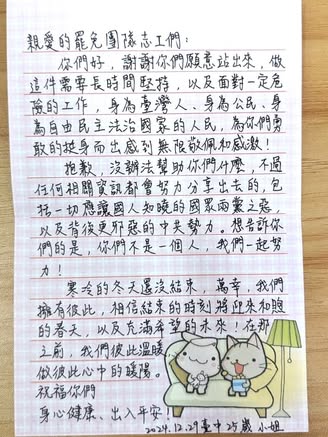 親愛的罷免團隊志工們：
你們好，謝謝你們願意站出來，做
這件需要長時間堅持，以及面對一定危
險的工作，身為臺灣人、身為公民、身
為自由民主法治國家的人民，為你們勇
敢的挺身而出感到無限敬佩和感激！
抱歉，沒辦法幫助你們什麼，不過
任何相關資訊都會努力分享出去的，包
括一切應讓國人知曉的國眾兩黨之惡，
以及背後更邪惡的中共勢力。想告訴你
們的是，你們不是一個人，我們一起努
力！
寒冷的冬天還沒結束，萬幸，我們
擁有彼此，相信結束的時刻將迎來和煦
的春天，以及充滿希望的未來！在那
之前，我們彼此溫暖
做彼此心中的暖陽。
祝福你們
身心健康、出入平安！
2024.12.29 臺中 25歲 小姐